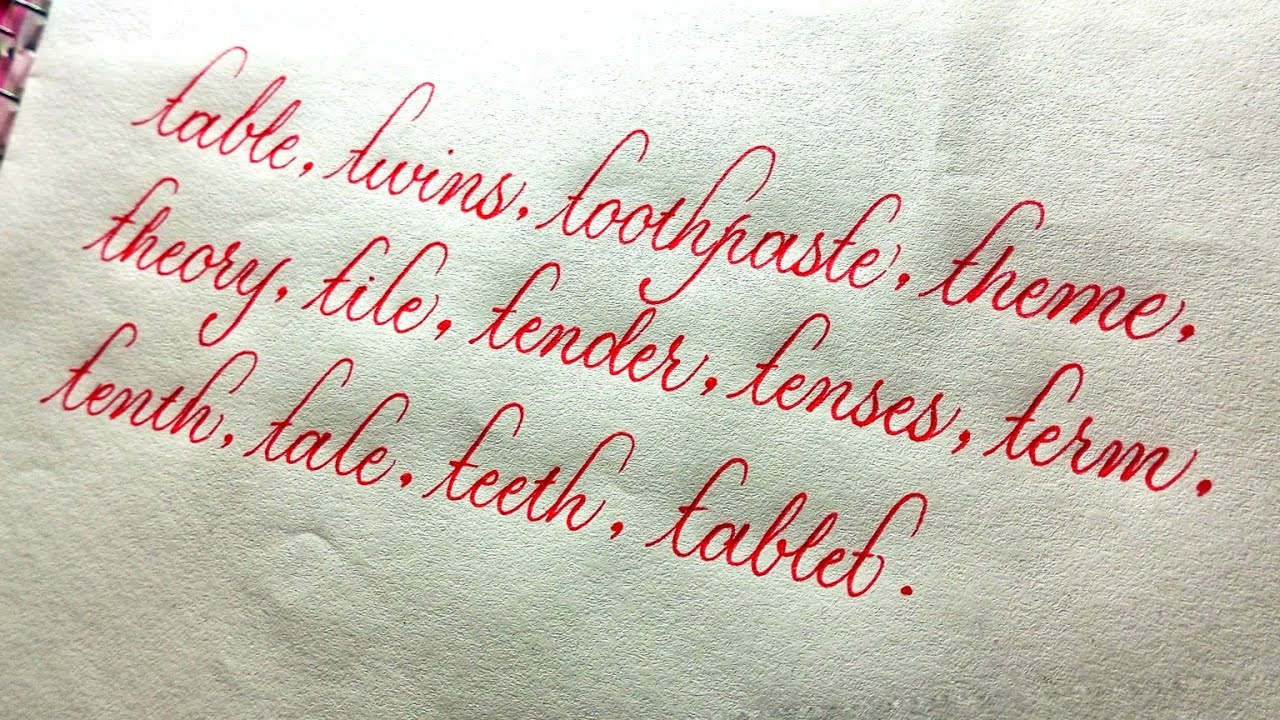 table, twins, toothpaste, theme,
theory, tile, tender, tenses, term.
tenth, tale, teeth, tablet.